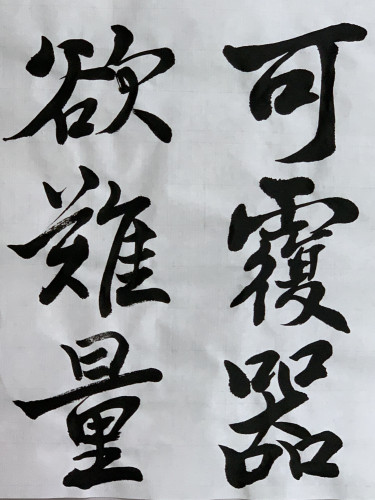 可覆器
欲難量